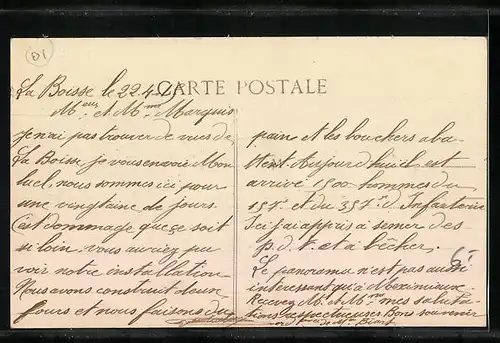 01
La Boisse le 22.4
CARTE POSTALE
Mr et Mme Marquis
je n'ai pas trouver de vues de
La Boisse, je vous envoie Mon
luel, nous sommes ici pour
une vingtaine de jours.
C'est dommage que ce soit
si loin, vous auriez pu
voir notre installation
Nous avons construit deux
fours et nous faisons du
pain et les bouchers aba
ttent Aujourd'hui il est
arrivé 1500 hommes du
157e et du 357e d'Infanterie
Ici j'ai appris à semer des
p.d.t. et à bêcher.
Le panorama n'est pas aussi
intéressant qu'à Meximieux.
Recevez Mr et Mme mes saluta
tions respectueuses Bons souvenir
de Mr
6.-